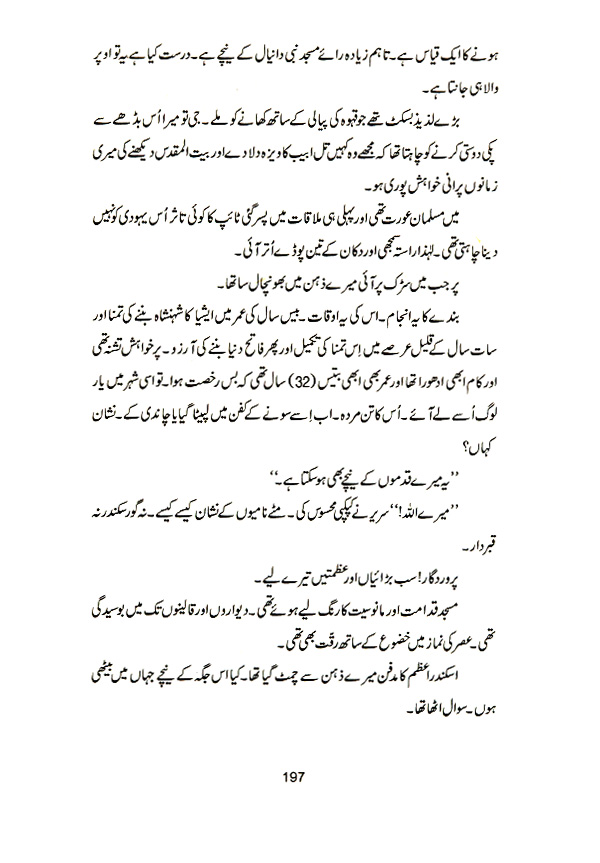 ہونے کا ایک قیاس ہے۔ تاہم زیادہ رائے مسجد نبی دانیال کے نیچے ہے۔ درست کیا ہے یہ تو اوپر
والا ہی جانتا ہے۔
بڑے لذیذ بسکٹ تھے جو قہوہ کی پیالی کے ساتھ کھانے کو ملے۔ جی تو میرا اُس بڈھے سے
پکی دوستی کرنے کو چاہتا تھا کہ مجھے وہ کہیں تل ابیب کا ویزہ دلا دے اور بیت المقدس دیکھنے کی میری
زمانوں پرانی خواہش پوری ہو۔
میں مسلمان عورت تھی اور پہلی ہی ملاقات میں پسر گئی ٹائپ کا کوئی تاثر اُس یہودی کو نہیں
دینا چاہتی تھی۔ لہٰذا راستہ سمجھی اور دکان کے تین پوڈے اُتر آئی۔
پر جب میں سڑک پر آئی میرے ذہن میں بھونچال سا تھا۔
بندے کا یہ انجام۔ اس کی یہ اوقات۔ بیس سال کی عمر میں ایشیا کا شہنشاہ بننے کی تمنا اور
سات سال کے قلیل عرصے میں اِس تمنا کی تکمیل اور پھر فاتح دنیا بننے کی آرزو۔ پر خواہش تشنہ تھی
اور کام ابھی ادھورا تھا اور عمر بھی ابھی بتیس (32) سال تھی کہ بس رخصت ہوا۔ تو اسی شہر میں یار
لوگ اُسے لے آئے۔ اُس کا تن مردہ۔ اب اِسے سونے کے کفن میں لپیٹا گیا یا چاندی کے۔ نشان
کہاں؟
’’یہ میرے قدموں کے نیچے بھی ہو سکتا ہے۔‘‘
’’میرے اللہ!‘‘ سریر نے کپکپی محسوس کی۔ مٹے نامیوں کے نشان کیسے کیسے۔ نہ گور سکندر نہ
قبر دار۔
پروردگار! سب بڑائیاں اور عظمتیں تیرے لیے۔
مسجد قدامت اور مانوسیت کا رنگ لیے ہوئے تھی۔ دیواروں اور قالینوں تک میں بوسیدگی
تھی۔ عصر کی نماز میں خضوع کے ساتھ رقّت بھی تھی۔
اسکندر اعظم کا مدفن میرے ذہن سے چمٹ گیا تھا۔ کیا اس جگہ کے نیچے جہاں میں بیٹھی
ہوں۔ سوال اٹھا تھا۔
197